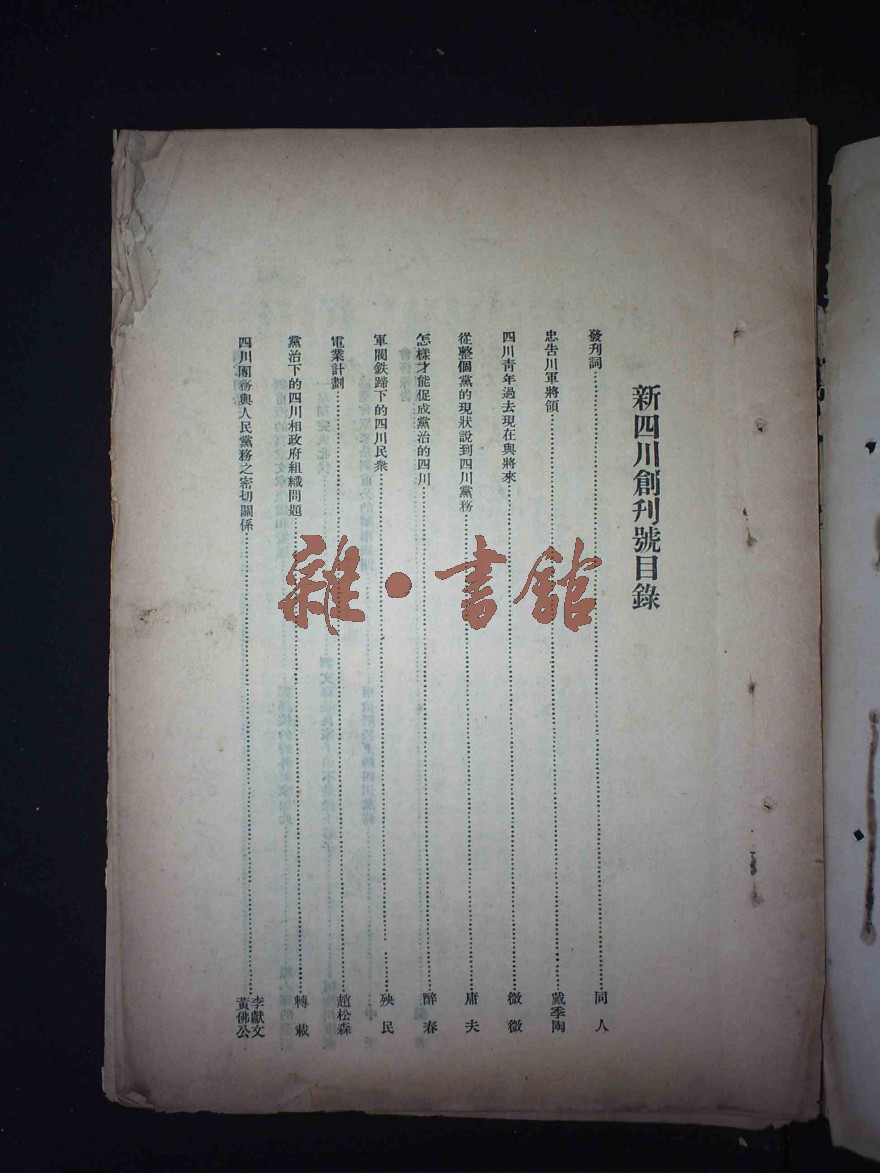 新四川創刊號目錄
發刊詞……同人
忠告川軍將領……戴季陶
四川青年過去現在與將來……微微
從整個黨的現狀說到四川黨務……庸夫
怎樣才能促成黨治的四川……醉春
軍閥鉄蹄下的四川民衆……殃民
電業計劃……趙松森
黨治下的四川相政府組織問題……轉載
四川團務與人民黨務之密切關係……李獻文 黃佛公
雜·書館